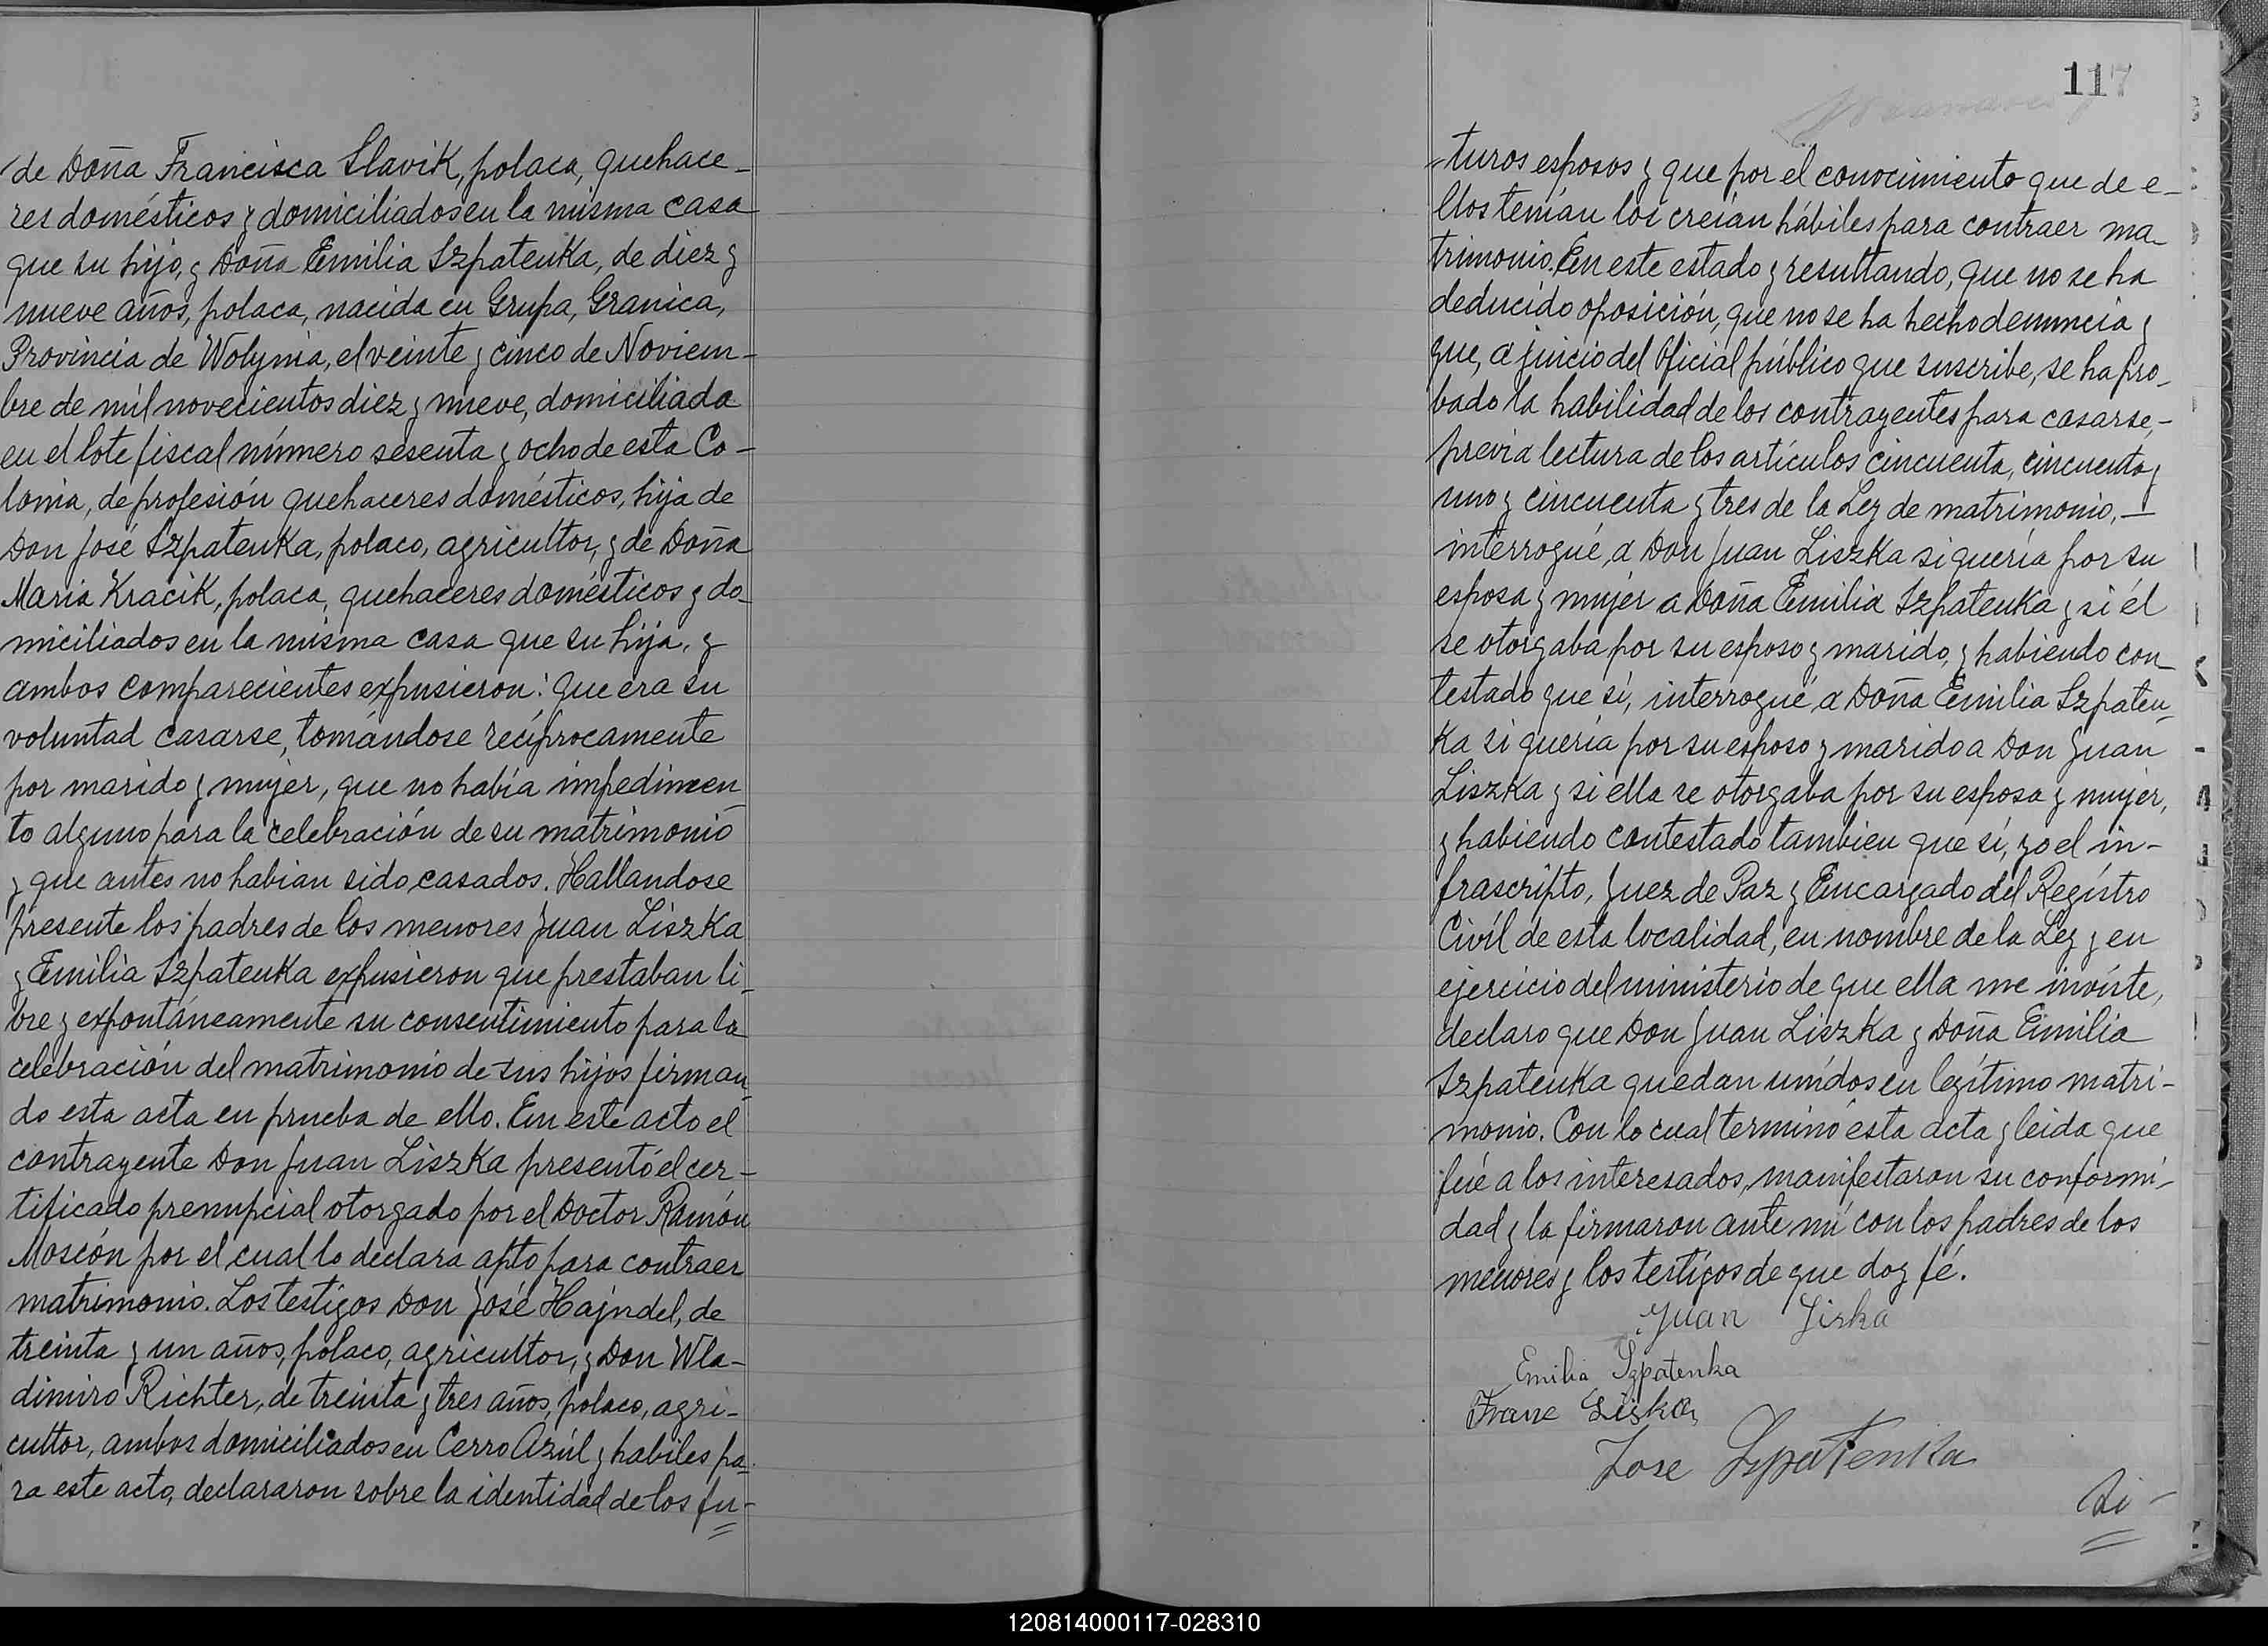 de Doña Francisca Slavik, polaca, quehace-
res domésticos y domiciliados en la misma casa
que su hijo, y Doña Emilia Szpatenka, de diez y
nueve años, polaca, nacida en Grupa, Granica,
Provincia de Wolynia, el veinte y cinco de Noviem-
bre de mil novecientos diez y nueve, domiciliada
en el lote fiscal número sesenta y ocho de esta Co-
lonia, de profesión quehaceres domésticos, hija de
Don José Szpatenka, polaco, agricultor, y de Doña
Maria Kracik, polaca, quehaceres domésticos y do-
miciliados en la misma casa que su hija, y
ambos comparecientes expusieron: que era su
voluntad casarse, tomándose recíprocamente
por marido y mujer, que no había impedimen-
to alguno para la celebración de su matrimonio
y que antes no habian sido casados. Hallandose
presente los padres de los menores Juan Liszka
y Emilia Szpatenka expusieron que prestaban li-
bre y expontáneamente su consentimiento para la
celebración del matrimonio de sus hijos firman-
do esta acta en prueba de ello. En este acto el
contrayente Don Juan Liszka presentó el cer-
tificado prenupcial otorgado por el Doctor Ramón
Moseón por el cual lo declara apto para contraer
matrimonio. Los testigos Don José Hajndel, de
treinta y un años, polaco, agricultor, y Don Wla-
dimiro Richter, de treinta y tres años, polaco, agri-
cultor, ambos domiciliados en Cerro Azúl y habiles pa-
ra este acto, declararon sobre la identidad de los fu-
117
-turos esposos y que por el conocimiento que de e-
llos tenían los creían hábiles para contraer ma-
trimonio. En este estado y resultando, que no se ha
deducido oposición, que no se ha hecho denuncia y
que, a juicio del Oficial público que suscribe, se ha pro-
bado la habilidad de los contrayentes para casarse,-
previa lectura de los artículos cincuenta, cincuenta y
uno y cincuenta y tres de la Ley de matrimonio,-
interrogué, a Don Juan Liszka si quería por su
esposa y mujer a Doña Emilia Szpatenka y si él
se otorgaba por su esposo y marido, y habiendo con-
testado que sí, interrogué a Doña Emilia Szpaten-
ka si quería por su esposo y marido a Don Juan
Liszka y si ella se otorgaba por su esposa y mujer,
y habiendo contestado tambien que sí, yo el in-
frascripto, Juez de Paz y Encargado del Registro
Civíl de esta localidad, en nombre de la Ley y en
ejercicio del ministerio de que ella me invíste,
declaro que Don Juan Liszka y Doña Emilia
Szpatenka quedan unídos en legítimo matri-
monio. Con lo cual terminó esta acta y leida que
fué a los interesados, manifestaron su conformi-
dad y la firmaron ante mí con los padres de los
menores y los testigos de que doy fé.
Juan Liska
Emilia Szpatenka
Franc Liska
Jose Szpatenka
Si-
120814000117-028310